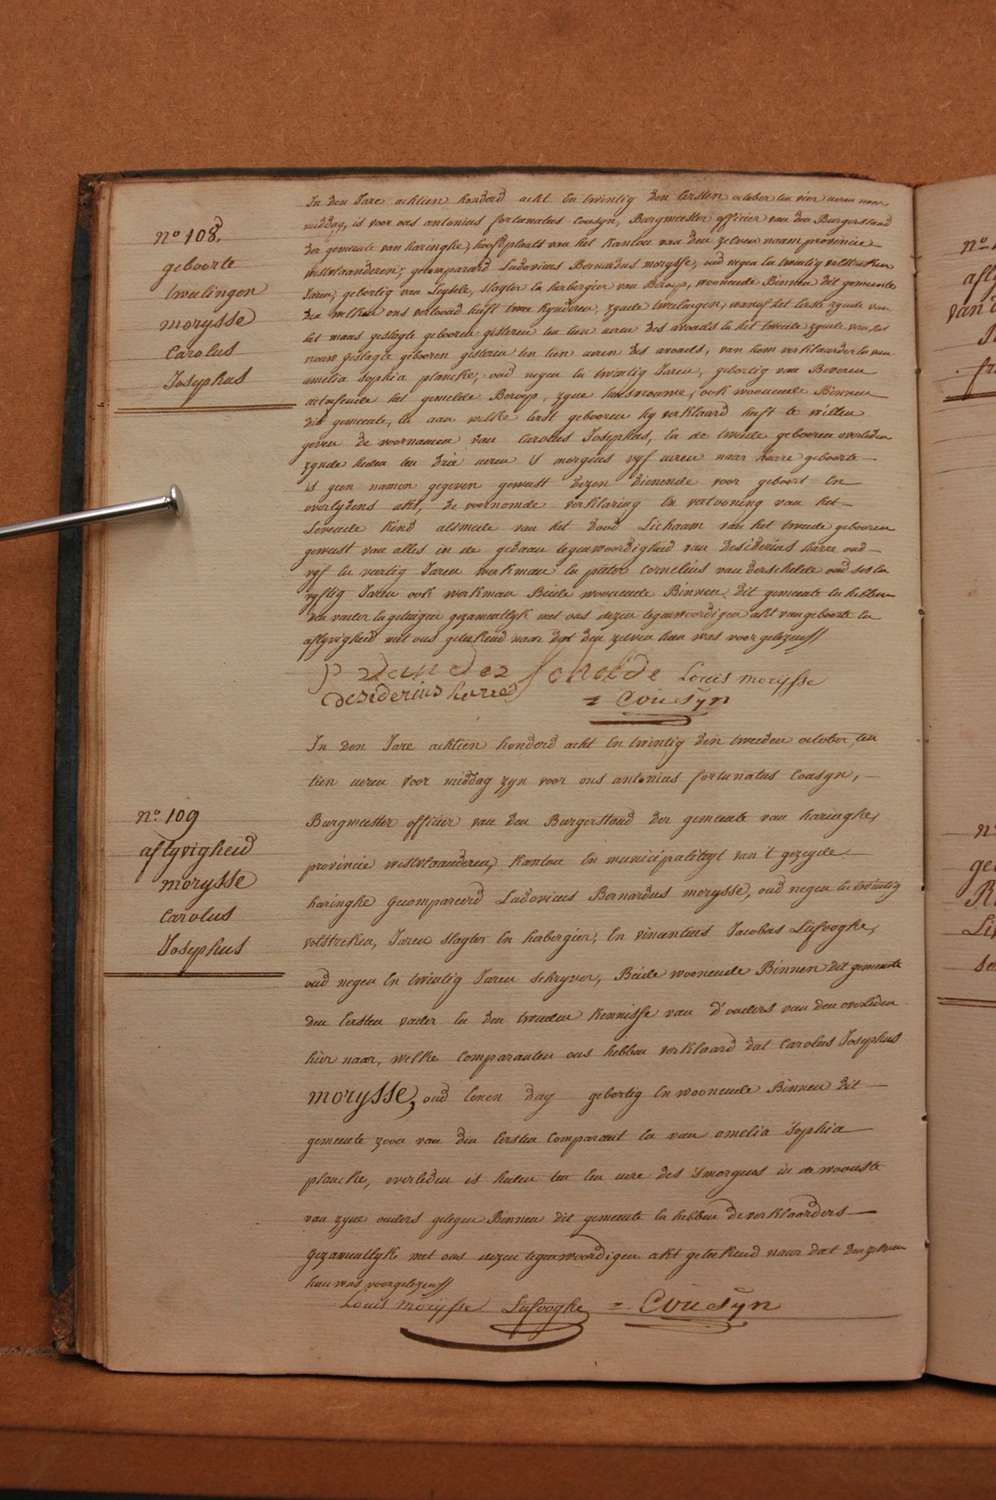 n.° 108.
geboorte
tweelingen
morysse
Carolus
Josephus
In den Jare achtien honderd acht En twintig den Eersten october ten vier uren naer
middag, is voor ons antonius fortunatus Cousyn, Burgmeester officier van den Burgerstand
der gemeente van haringhe, hoofdplaats van het kanton van den zelven naem provincie
westvlaanderen, gecompareerd Ludovicus Bernardus morysse, oud negen En twintig volstreken
Jaren, gebortig van Leysele, slagter En herbergier van Beroep, woonende Binnen dit gemeente
den welken ons vertoond heeft twee kinderen, zynde tweelingen, waervan het Eerste zynde van
het mans geslagte geboren gisteren ten tien uren des avonds En het tweede zynde van het
geslagte geboren gisteren ten tien uren des avonds, van hem verklaarder En van
amelia Sophia plancke, oud negen En twintig Jaren, gebortig van Beveren
uitoefende het gemelde Beroep, zyne huisvrouwe, ook woonende Binnen
dit gemeente, En aan welke Eerst geboren hy verklaard heeft te willen
geven de voornamen van Carolus Josephus, En de tweede geboren overleden
zynde heden ten drie uren 's morgens vyf uren naar haere geboorte
is geen namen gegeven geweest dezen dienende voor geboort En
overlydens akt, de voornomde verklaring En vertooning van het
Levende kind alsmede van het dood Lichaam van het tweede geboren
geweest van alles in de gedaan tegenwoordigheid van desiderius harre oud
vyf En veertig Jaren werkman En pieter Cornelius vanderschelde oud ses En
vyftig Jaren ook werkman Beide woonende Binnen dit gemeente En hebben
den vader En getuigen gezamentlyk met ons dezen tegenwoordigen akt van geboorte En
aflyvigheid met ons geteekend naar dat den zelven hun was voorgelezen
P vander Schelde Louis morysse
desiderius harre = Cousyn
n.° 109
aflyvigheid
morysse
Carolus
Josephus
In den Jare achtien honderd acht En twintig den tweeden october, ten
tien uren voor middag zyn voor ons antonius fortunatus Cousyn,
Burgmeester officier van den Burgerstand der gemeente van haringhe,
provincie westvlaanderen, kanton En municipaliteyt van 't gezeyde
haringhe gecompareerd Ludovicus Bernardus morysse, oud negen En twintig
volstreken, Jaren slagter En herbergier, En vincentius Jacobus Lufooghe,
oud negen En twintig Jaren schryver, Beide woonende Binnen dit gemeente
den Eersten vader En den tweeden kennisse van d'ouders van den overleden
hier naar, welke comparanten ons hebben verklaard dat Carolus Josephus
morysse, oud Eenen dag gebortig En woonende Binnen dit
gemeente zoon van den Eersten Comparant En van amelia Sophia
plancke, overleden is heden ten Een ure des 's morgens in de woonste
van zyne ouders gelegen Binnen dit gemeente En hebben de verklaarders
gezamentlyk met ons dezen tegenwoordigen akt geteekend naar dat den zelven
hun was voorgelezen
Louis morysse Lufooghe = Cousyn